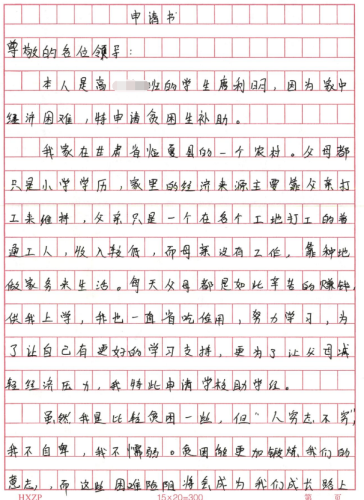 申请书
尊敬的各位领导：
本人是高班的学生唐利明，因为家中
经济困难，特申请贫困生补助。
我家在甘肃省临夏县的一个农村。父母都
只是小学学历，家里的经济来源主要靠父亲打
工来维持，父亲只是一个在各个工地打工的普
通工人，收入较低，而母亲没有工作，靠种地
做家务来生活。每天父母都是如此辛苦的赚钱，
供我上学，我也一直省吃俭用，努力学习，为
了让自己有更好的学习支持，更为了让父母减
轻经济压力，我特此申请学校助学金。
虽然我是比较贫困一些，但“人穷志不穷”，
我不自卑，我不懦弱。贫困做更加锻炼我们的
意志，而这些困难陪阴将会成为我们成长路上
HXZP
15×20=300
第 页